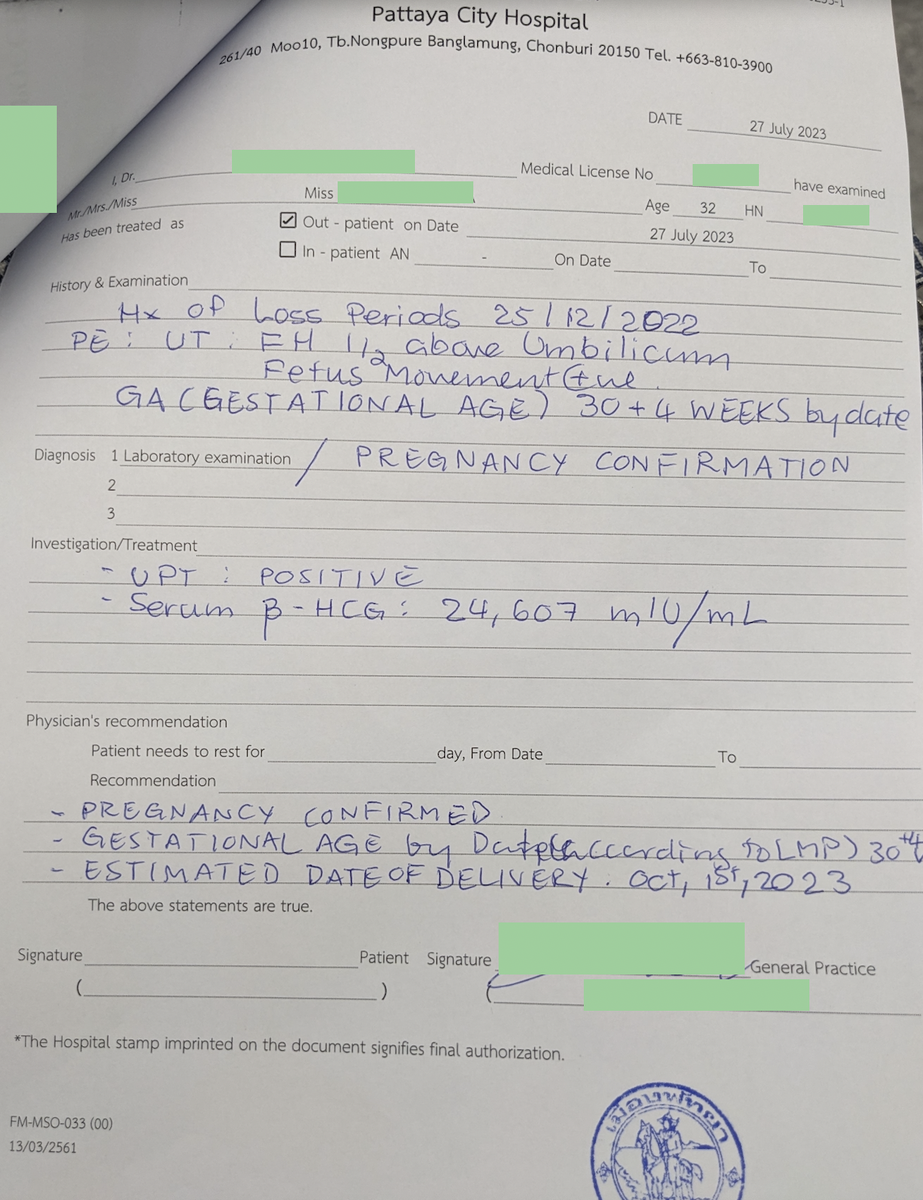 Pattaya City Hospital
261/40 Moo10, Tb.Nongpure Banglamung, Chonburi 20150 Tel. +663-810-3900
DATE 27 July 2023
I, Dr. Medical License No have examined
Mr./Mrs./Miss Miss Age 32 HN
Has been treated as ☑ Out - patient on Date 27 July 2023
☐ In - patient AN - On Date To
History & Examination
Hx of Loss Periods 25/12/2022
PE : UT : FH 1/2 above Umbilicum
Fetus Movement ⊕ve
GA (GESTATIONAL AGE) 30+4 WEEKS by date
Diagnosis 1 Laboratory examination / PREGNANCY CONFIRMATION
2
3
Investigation/Treatment
- UPT : POSITIVE
- Serum β-HCG : 24,607 mIU/mL
Physician's recommendation
Patient needs to rest for day, From Date To
Recommendation
- PREGNANCY CONFIRMED
- GESTATIONAL AGE by according to LMP) 30+4
- ESTIMATED DATE OF DELIVERY . Oct, 1st, 2023
The above statements are true.
Signature Patient Signature General Practice
( ) (
*The Hospital stamp imprinted on the document signifies final authorization.
FM-MSO-033 (00)
13/03/2561
เมืองพัทยา